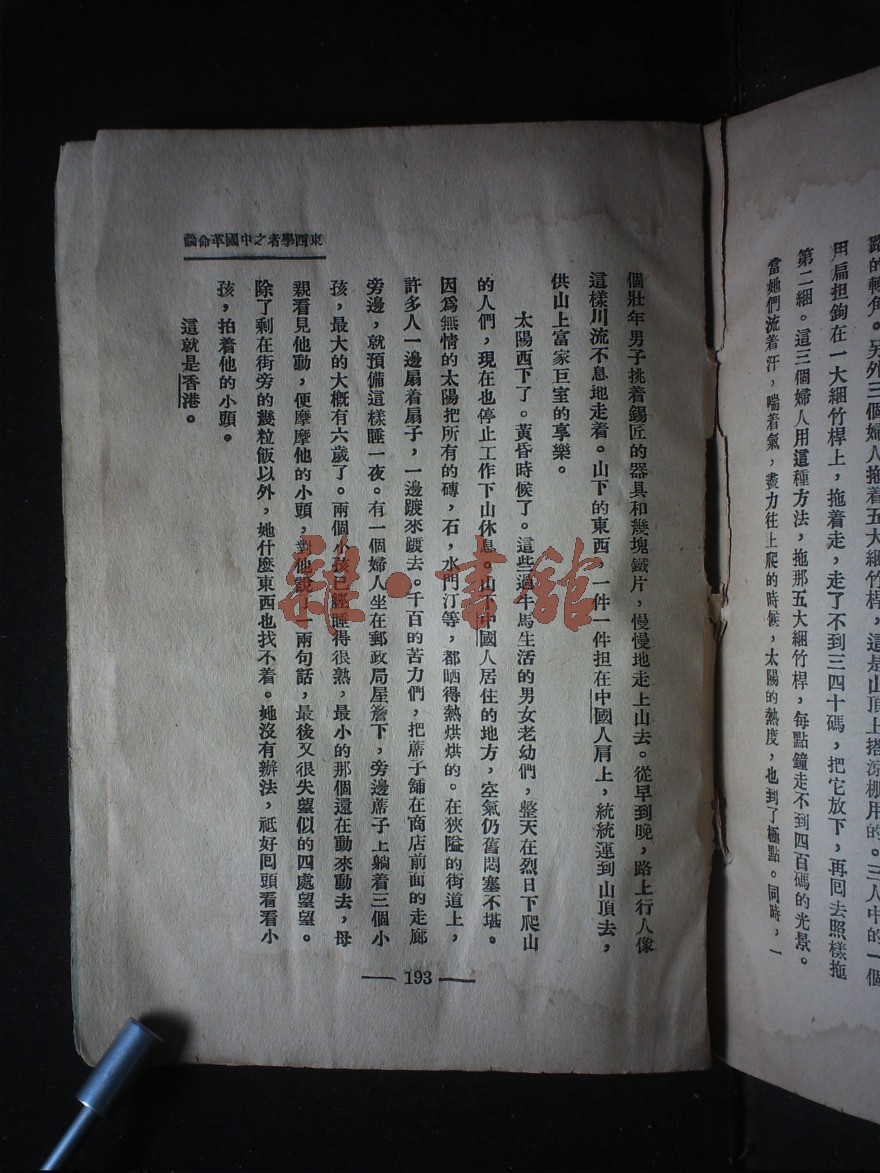 路的轉角。另外三個婦人拖着五大綑竹桿，這是山頂上搭涼棚用的。三人中的一個
用扁担鉤在一大綑竹桿上，拖着走，走了不到三四十碼，把它放下，再回去照樣拖
第二綑。這三個婦人用這種方法，拖那五大綑竹桿，每點鐘走不到四百碼的光景。
當她們流着汗，喘着氣，盡力往上爬的時候，太陽的熱度，也到了極點。同時，一
個壯年男子挑着錫匠的器具和幾塊鐵片，慢慢地走上山去。從早到晚，路上行人像
這樣川流不息地走着。山下的東西，一件一件担在中國人肩上，統統運到山頂去，
供山上富家巨室的享樂。
太陽西下了。黃昏時候了。這些過牛馬生活的男女老幼們，整天在烈日下爬山
的人們，現在也停止工作下山休息。山下中國人居住的地方，空氣仍舊悶塞不堪。
因爲無情的太陽把所有的磚，石，水門汀等，都晒得熱烘烘的。在狹隘的街道上，
許多人一邊扇着扇子，一邊踱來踱去。千百的苦力們，把蓆子舖在商店前面的走廊
旁邊，就預備這樣睡一夜。有一個婦人坐在郵政局屋簷下，旁邊蓆子上躺着三個小
孩，最大的大概有六歲了。兩個小孩已經睡得很熟，最小的那個還在動來動去，母
親看見他動，便摩摩他的小頭，對他說一兩句話，最後又很失望似的四處望望。
除了剩在街旁的幾粒飯以外，她什麼東西也找不着。她沒有辦法，祇好回頭看看小
孩，拍着他的小頭。
這就是香港。
東西學者之中國革命論
193
雜·書館